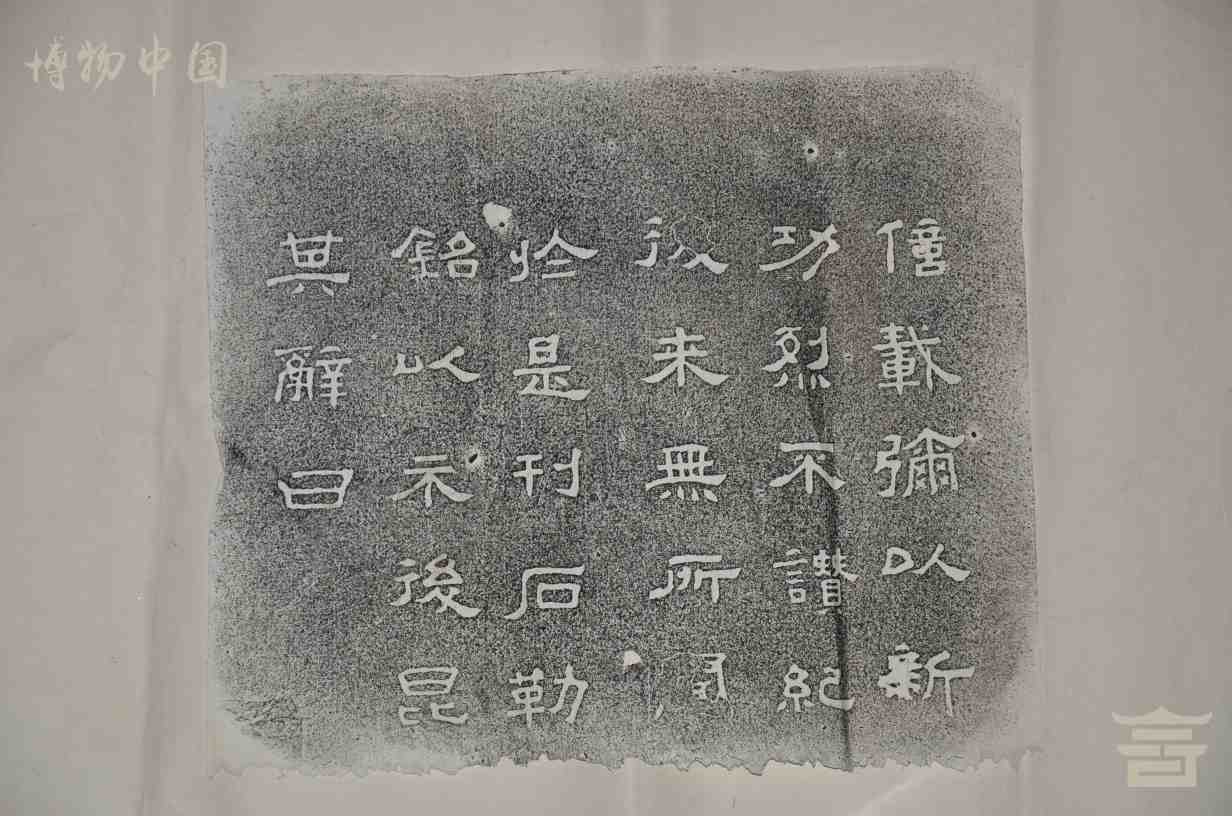 博物中国
億載彌以新
功烈不讚紀
後来無所
於是刊石勒
銘以示後昆
其辭曰